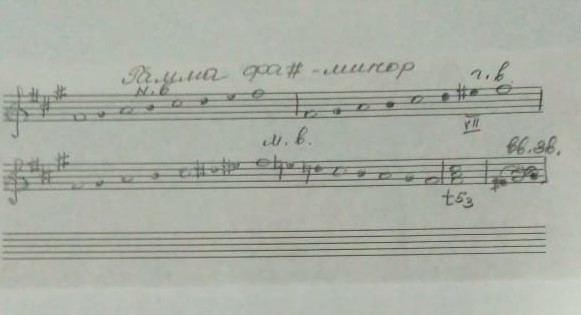 Гамма фа# - минор
н.в г.в.
VII
м.в.
вв.зв.
t53